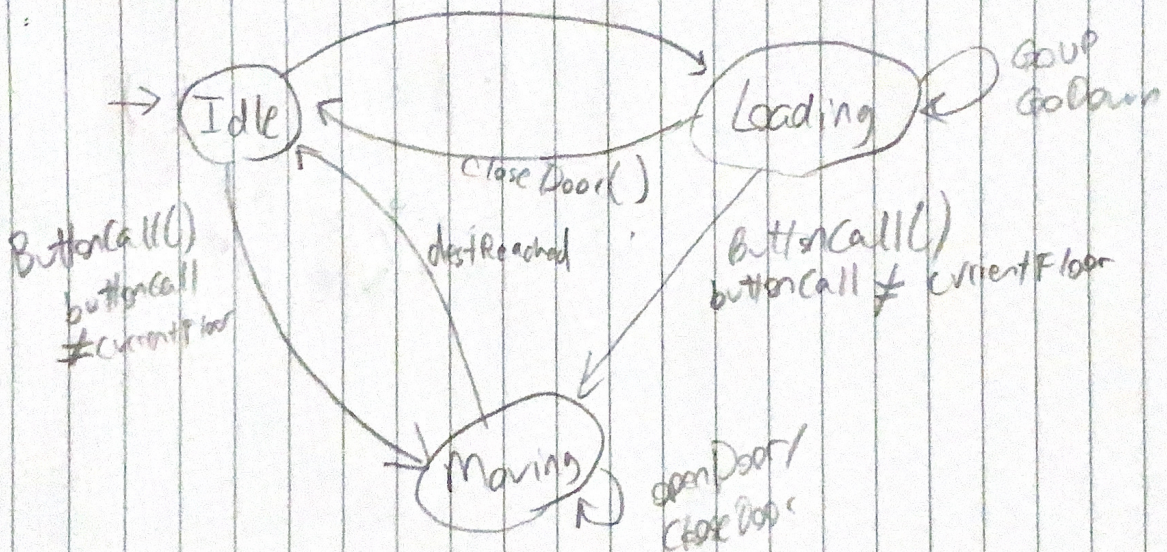 Idle
Loading
GoUP
GoDown
closeDoor()
ButtonCall()
buttoncall
≠currentFloor
destReached
ButtonCall()
buttonCall ≠ currentFloor
Moving
openDoor/
CloseDoor